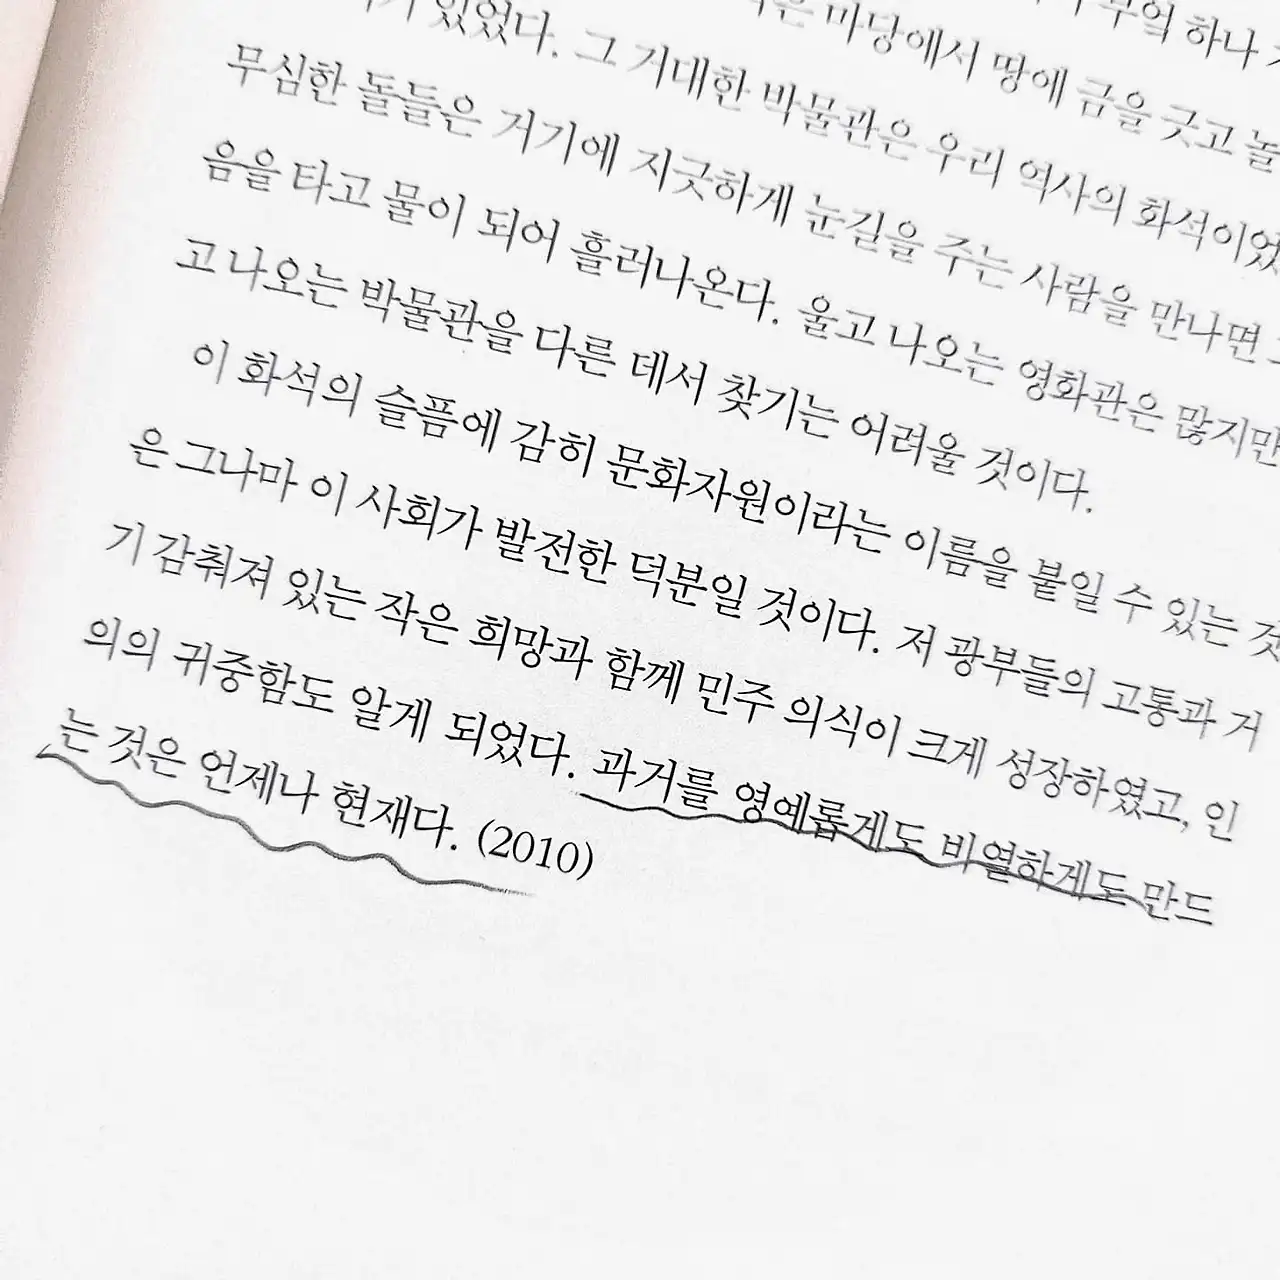 부엌 하나
마당에서 땅에 금을 긋고 놀
있었다. 그 거대한 박물관은 우리 역사의 화석이었
무심한 돌들은 거기에 지긋하게 눈길을 주는 사람을 만나면
음을 타고 물이 되어 흘러나온다. 울고 나오는 영화관은 많지만
고 나오는 박물관을 다른 데서 찾기는 어려울 것이다.
이 화석의 슬픔에 감히 문화자원이라는 이름을 붙일 수 있는 것
은 그나마 이 사회가 발전한 덕분일 것이다. 저 광부들의 고통과 거
기 감춰져 있는 작은 희망과 함께 민주 의식이 크게 성장하였고, 인
의의 귀중함도 알게 되었다. 과거를 영예롭게도 비열하게도 만드
는 것은 언제나 현재다. (2010)